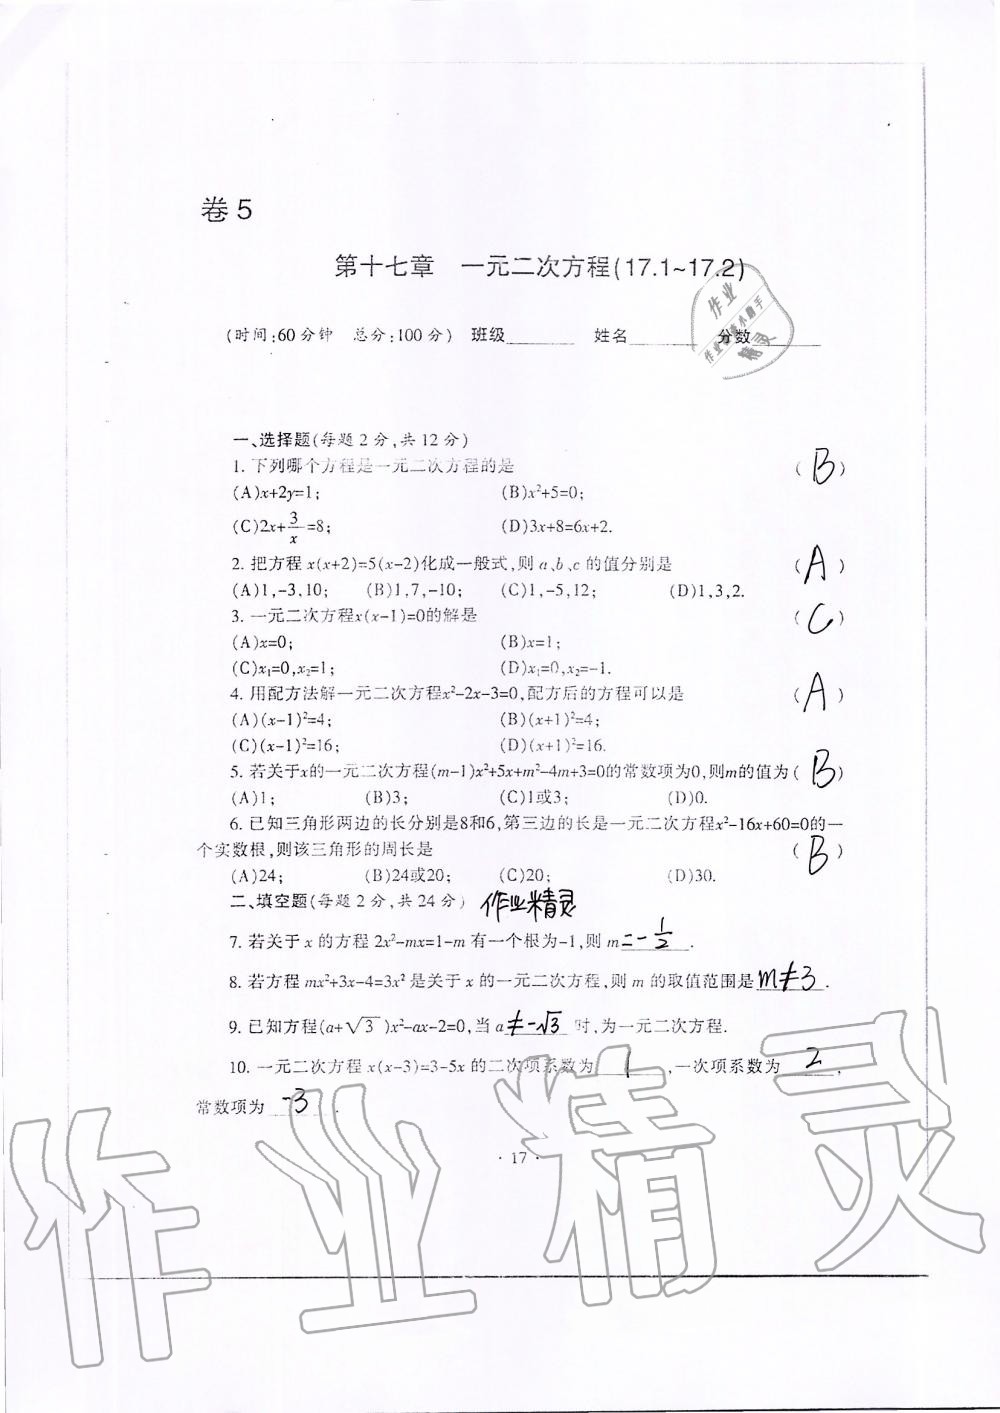 卷 5
第十七章 一元二次方程(17.1~17.2)
(时间:60分钟 总分:100分) 班级______ 姓名______ 分数______
作业
作业 小助手
精灵
一、选择题(每题2分,共12分)
1. 下列哪个方程是一元二次方程的是 (B)
(A)x+2y=1; (B)x²+5=0;
(C)2x+3/x=8; (D)3x+8=6x+2.
2. 把方程x(x+2)=5(x-2)化成一般式,则a、b、c的值分别是 (A)
(A)1,-3,10; (B)1,7,-10; (C)1,-5,12; (D)1,3,2.
3. 一元二次方程x(x-1)=0的解是 (C)
(A)x=0; (B)x=1;
(C)x₁=0,x₂=1; (D)x₁=0,x₂=-1.
4. 用配方法解一元二次方程x²-2x-3=0,配方后的方程可以是 (A)
(A)(x-1)²=4; (B)(x+1)²=4;
(C)(x-1)²=16; (D)(x+1)²=16.
5. 若关于x的一元二次方程(m-1)x²+5x+m²-4m+3=0的常数项为0,则m的值为(B)
(A)1; (B)3; (C)1或3; (D)0.
6. 已知三角形两边的长分别是8和6,第三边的长是一元二次方程x²-16x+60=0的一
个实数根,则该三角形的周长是 (B)
(A)24; (B)24或20; (C)20; (D)30.
二、填空题(每题2分,共24分) 作业精灵
7. 若关于x的方程2x²-mx=1-m有一个根为-1,则m=-1/2.
8. 若方程mx²+3x-4=3x²是关于x的一元二次方程,则m的取值范围是m≠3.
9. 已知方程(a+√3)x²-ax-2=0,当a≠-√3时,为一元二次方程.
10. 一元二次方程x(x-3)=3-5x的二次项系数为 1 ,一次项系数为 2 ,
常数项为 -3 .
· 17 ·
作业精灵